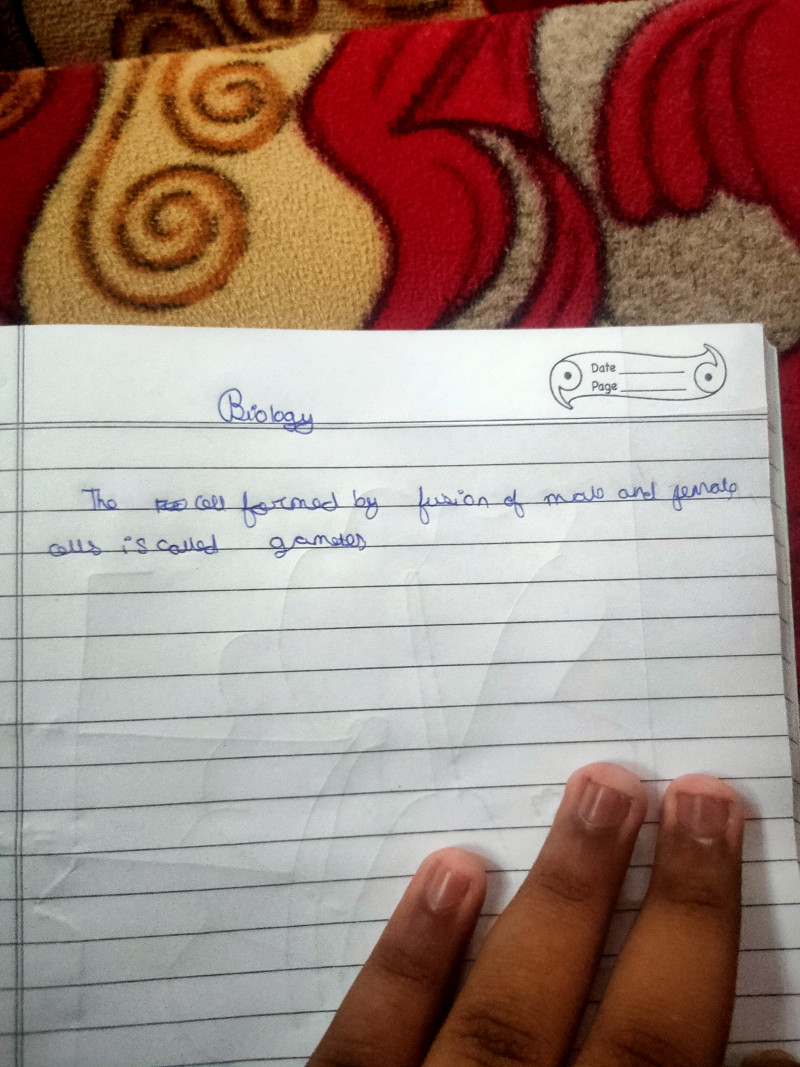 Date
Page
Biology
The cell formed by fusion of male and female
cells is called gametes